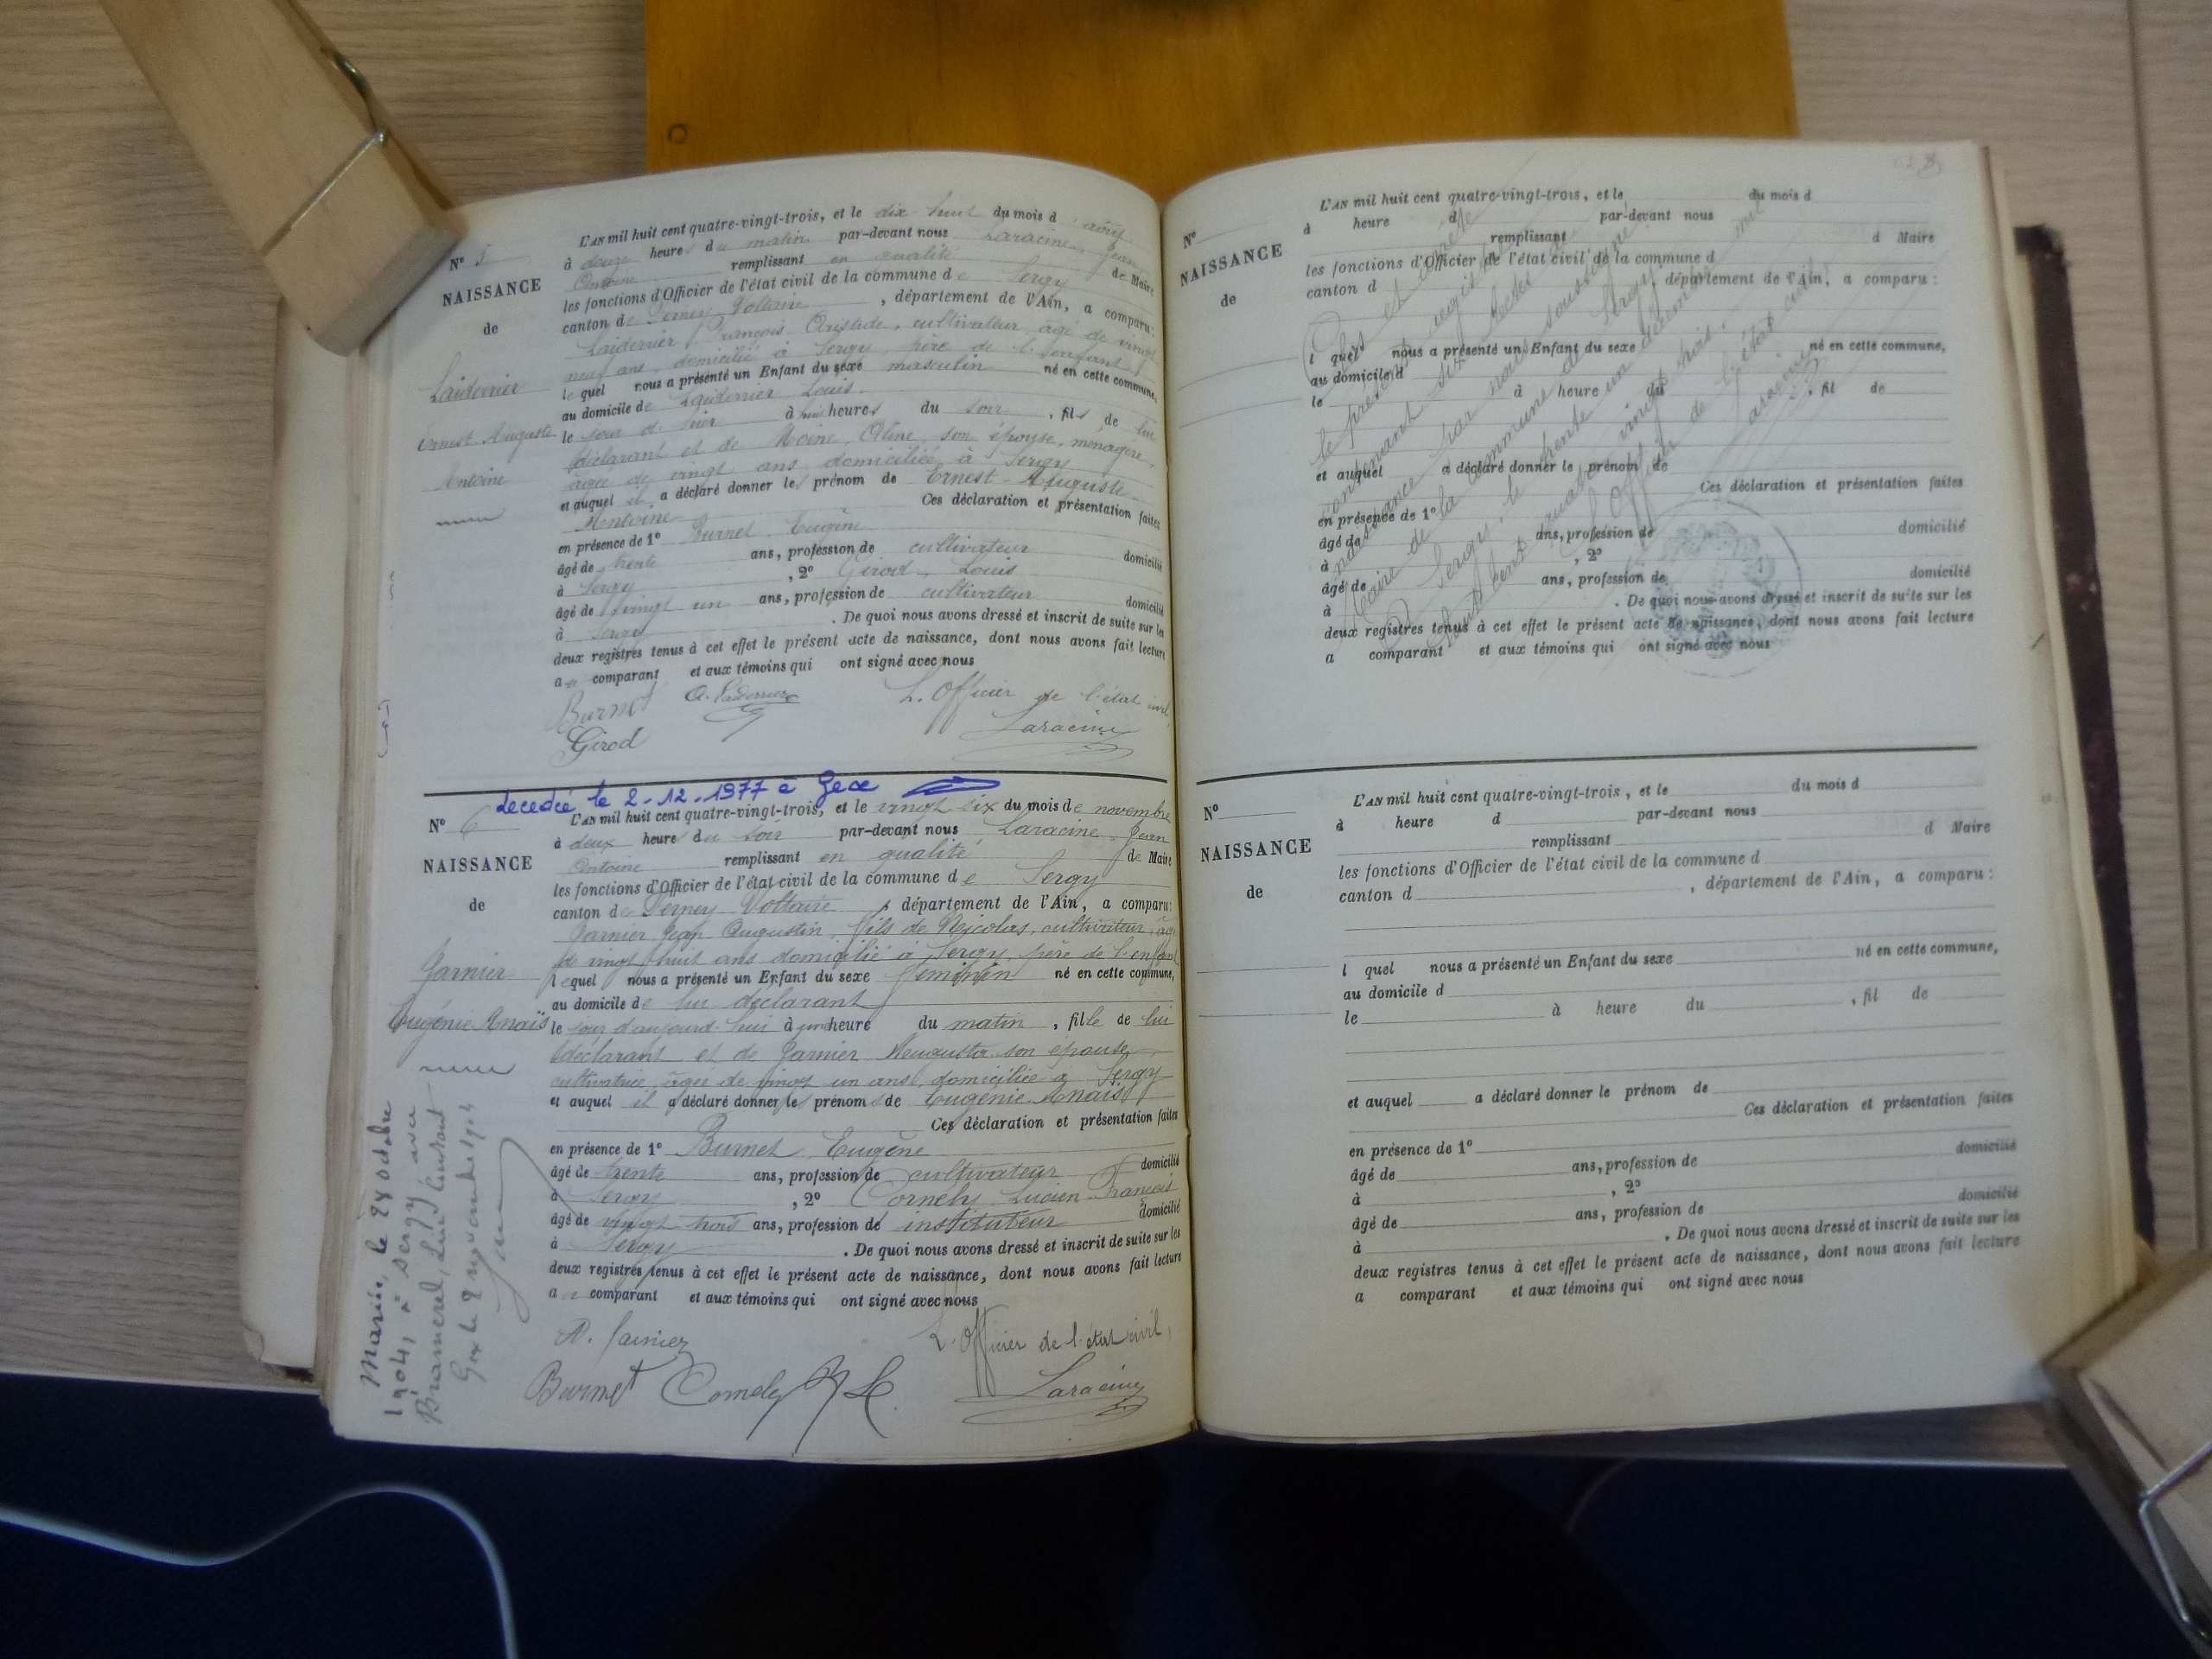 L'AN mil huit cent quatre-vingt-trois, et le dix huit du mois d'août
N° 5
à douze heures du matin par-devant nous Laracine, Jean
Antoine remplissant en qualité de Maire
NAISSANCE
les fonctions d'Officier de l'état civil de la commune de Sergy
de
canton de Ferney Voltaire, département de l'Ain, a comparu:
Laiderrier François Aristide, cultivateur, âgé de vingt
neuf ans, domicilié à Sergy, père de l'enfant
Laiderrier
lequel nous a présenté un Enfant du sexe masculin né en cette commune,
au domicile de Laiderrier Louis
Ernest Auguste
le jour d'hier à heures du soir, fils de lui
Antoine
déclarant et de Moine, Oline, son épouse, ménagère,
âgée de vingt ans domiciliée à Sergy
et auquel il a déclaré donner les prénom de Ernest-Auguste-
Antoine Ces déclaration et présentation faites
en présence de 1° Burnet Eugène
âgé de trente ans, profession de cultivateur domicilié
à Sergy, 2° Girod, Louis
âgé de vingt un ans, profession de cultivateur domicilié
à Sergy. De quoi nous avons dressé et inscrit de suite sur les
deux registres tenus à cet effet le présent acte de naissance, dont nous avons fait lecture
au comparant et aux témoins qui ont signé avec nous
Burnet A. Laiderrier L'Officier de l'état civil,
Girod Laracine
decedée le 2-12-1977 à Gex
L'AN mil huit cent quatre-vingt-trois, et le vingt six du mois de novembre
N° 6
à deux heure du soir par-devant nous Laracine, Jean
Antoine remplissant en qualité de Maire
NAISSANCE
les fonctions d'Officier de l'état civil de la commune de Sergy
de
canton de Ferney Voltaire, département de l'Ain, a comparu:
Jarnier Jean Augustin, fils de Nicolas, cultivateur, âgé
de vingt huit ans domicilié à Sergy, père de l'enfant
Jarnier
lequel nous a présenté un Enfant du sexe féminin né en cette commune,
au domicile de lui déclarant
Eugénie Anaïs
le jour d'aujourd'hui à une heure du matin, fille de lui
déclarant et de Jarnier son épouse,
cultivatrice, âgée de vingt un ans, domiciliée à Sergy
et auquel il a déclaré donner les prénoms de Eugénie Anaïs
Ces déclaration et présentation faites
en présence de 1° Burnet, Eugène
âgé de trente ans, profession de cultivateur domicilié
à Sergy, 2° Cornely Lucien François
âgé de vingt trois ans, profession de instituteur domicilié
à Sergy. De quoi nous avons dressé et inscrit de suite sur les
deux registres tenus à cet effet le présent acte de naissance, dont nous avons fait lecture
au comparant et aux témoins qui ont signé avec nous
A. Jarnier L'Officier de l'état civil,
Burnet Cornely Laracine
Mariée, le 28 octobre
1904, à Sergy avec
Bramerel, Louis
Gex le 2 novembre 1904
L'AN mil huit cent quatre-vingt-trois, et le du mois d
N°
à heure d par-devant nous
remplissant d Maire
NAISSANCE
les fonctions d'Officier de l'état civil de la commune d
de
canton d département de l'Ain, a comparu:
l quel nous a présenté un Enfant du sexe né en cette commune,
au domicile d
le à heure du, fil de
et auquel a déclaré donner le prénom de
Ces déclaration et présentation faites
en présence de 1°
âgé de ans, profession de domicilié
à, 2°
âgé de ans, profession de domicilié
à. De quoi nous avons dressé et inscrit de suite sur les
deux registres tenus à cet effet le présent acte de naissance, dont nous avons fait lecture
a comparant et aux témoins qui ont signé avec nous
Clos et arrêté
le présent registre
contenant six actes de
naissance par nous soussigné
Maire de la commune de Sergy
à Sergy, le trente un décembre mil
huit cent quatre vingt trois.
L'Officier de l'état civil
Laracine
L'AN mil huit cent quatre-vingt-trois, et le du mois d
N°
à heure d par-devant nous
remplissant d Maire
NAISSANCE
les fonctions d'Officier de l'état civil de la commune d
de
canton d, département de l'Ain, a comparu:
l quel nous a présenté un Enfant du sexe né en cette commune,
au domicile d
le à heure du, fil de
et auquel a déclaré donner le prénom de
Ces déclaration et présentation faites
en présence de 1°
âgé de ans, profession de domicilié
à, 2°
âgé de ans, profession de domicilié
à. De quoi nous avons dressé et inscrit de suite sur les
deux registres tenus à cet effet le présent acte de naissance, dont nous avons fait lecture
a comparant et aux témoins qui ont signé avec nous